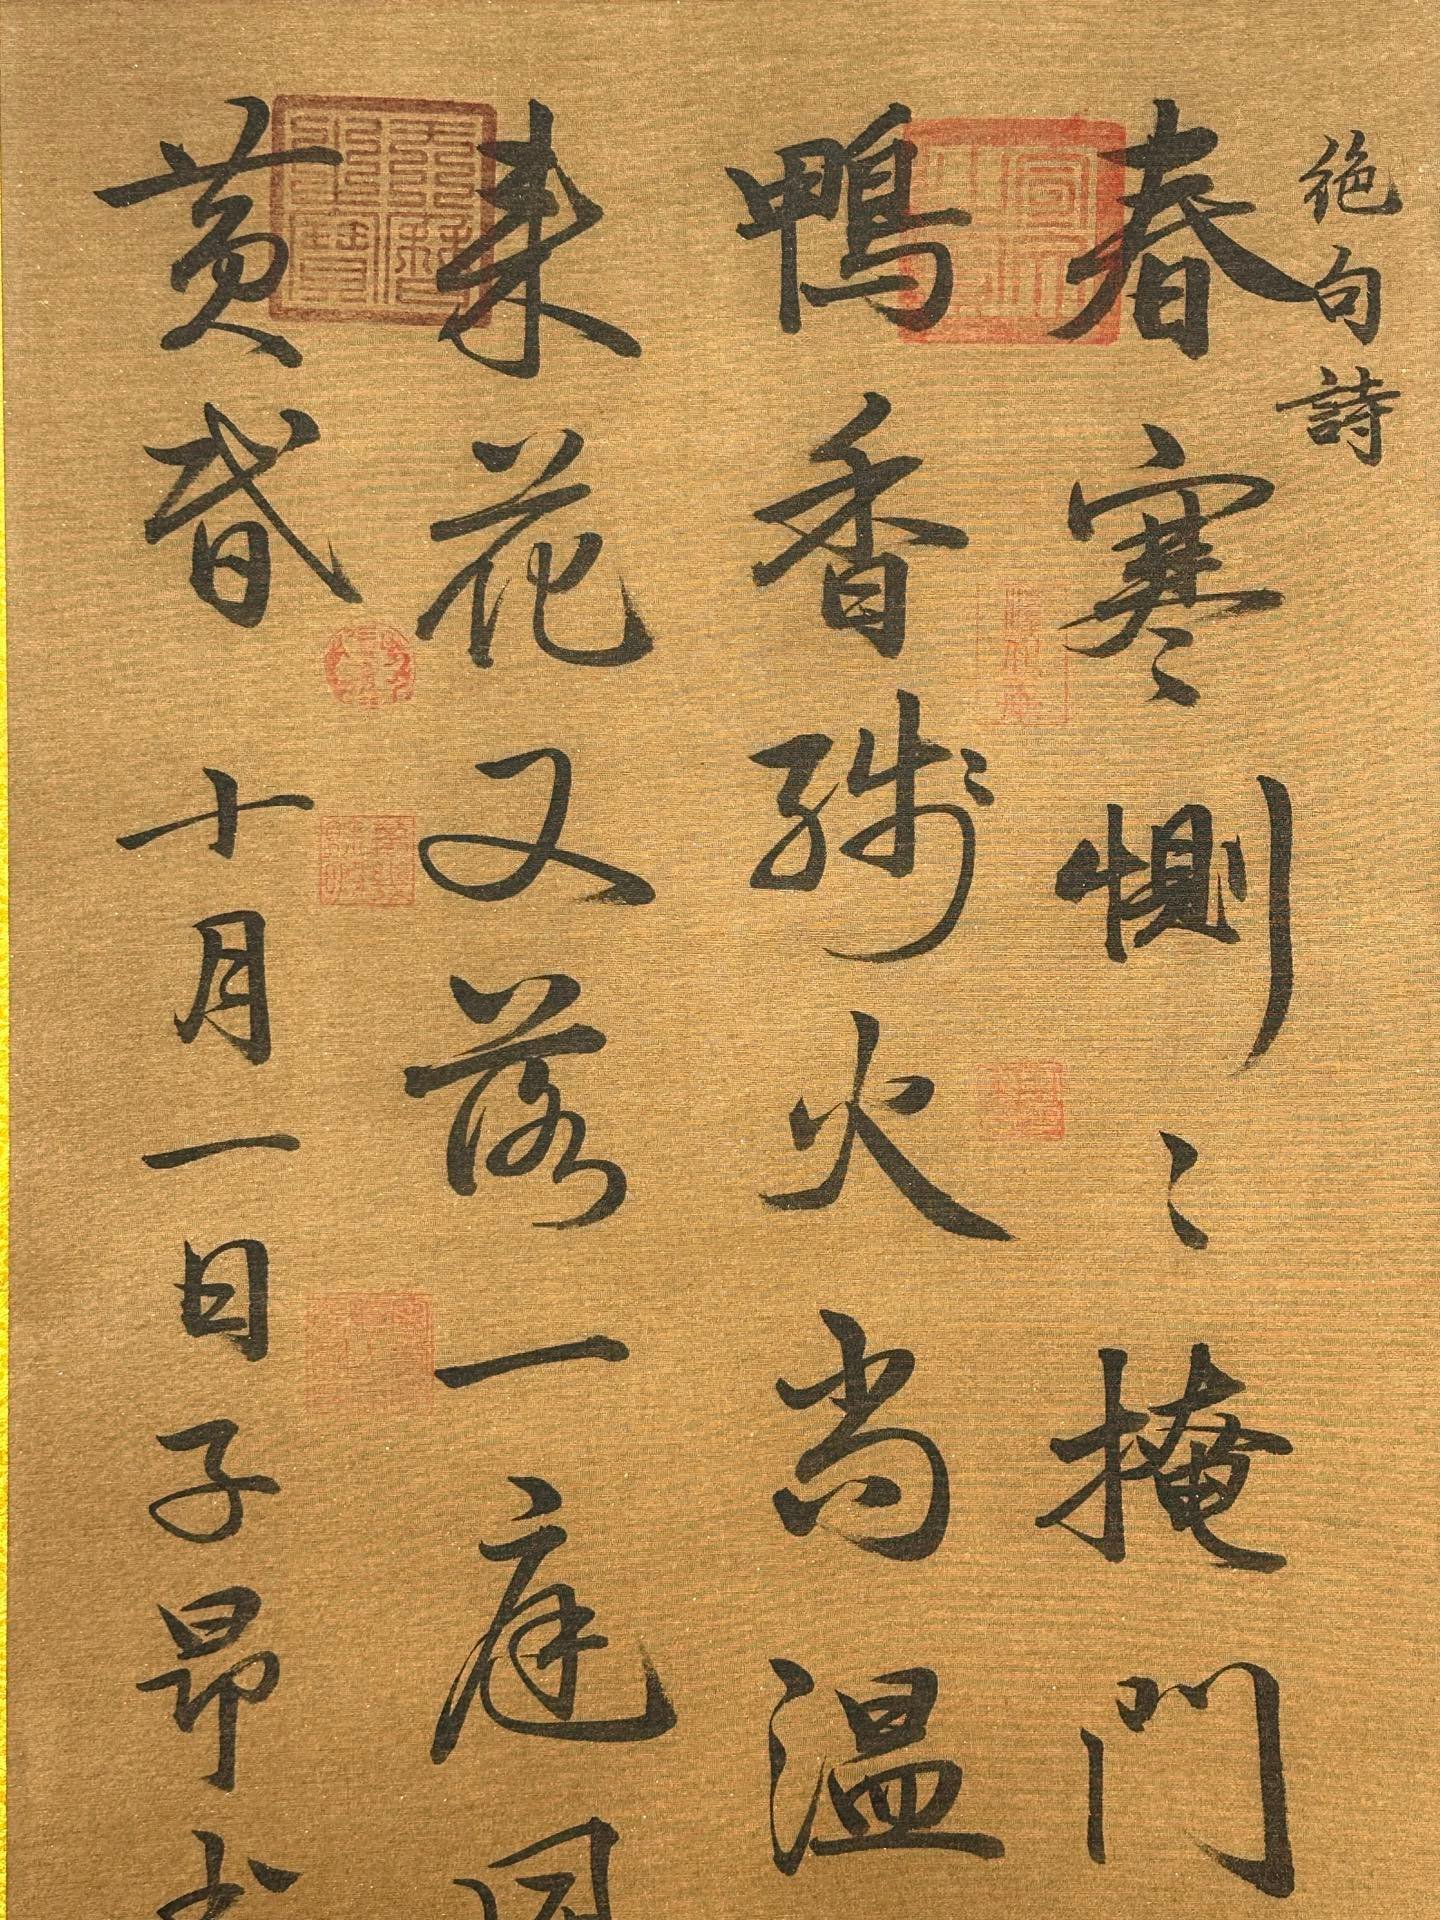 絶句詩
春寒惻〻掩門
鴨香殘火尚温
来花又落一庭風
黄昏十月一日子昂書